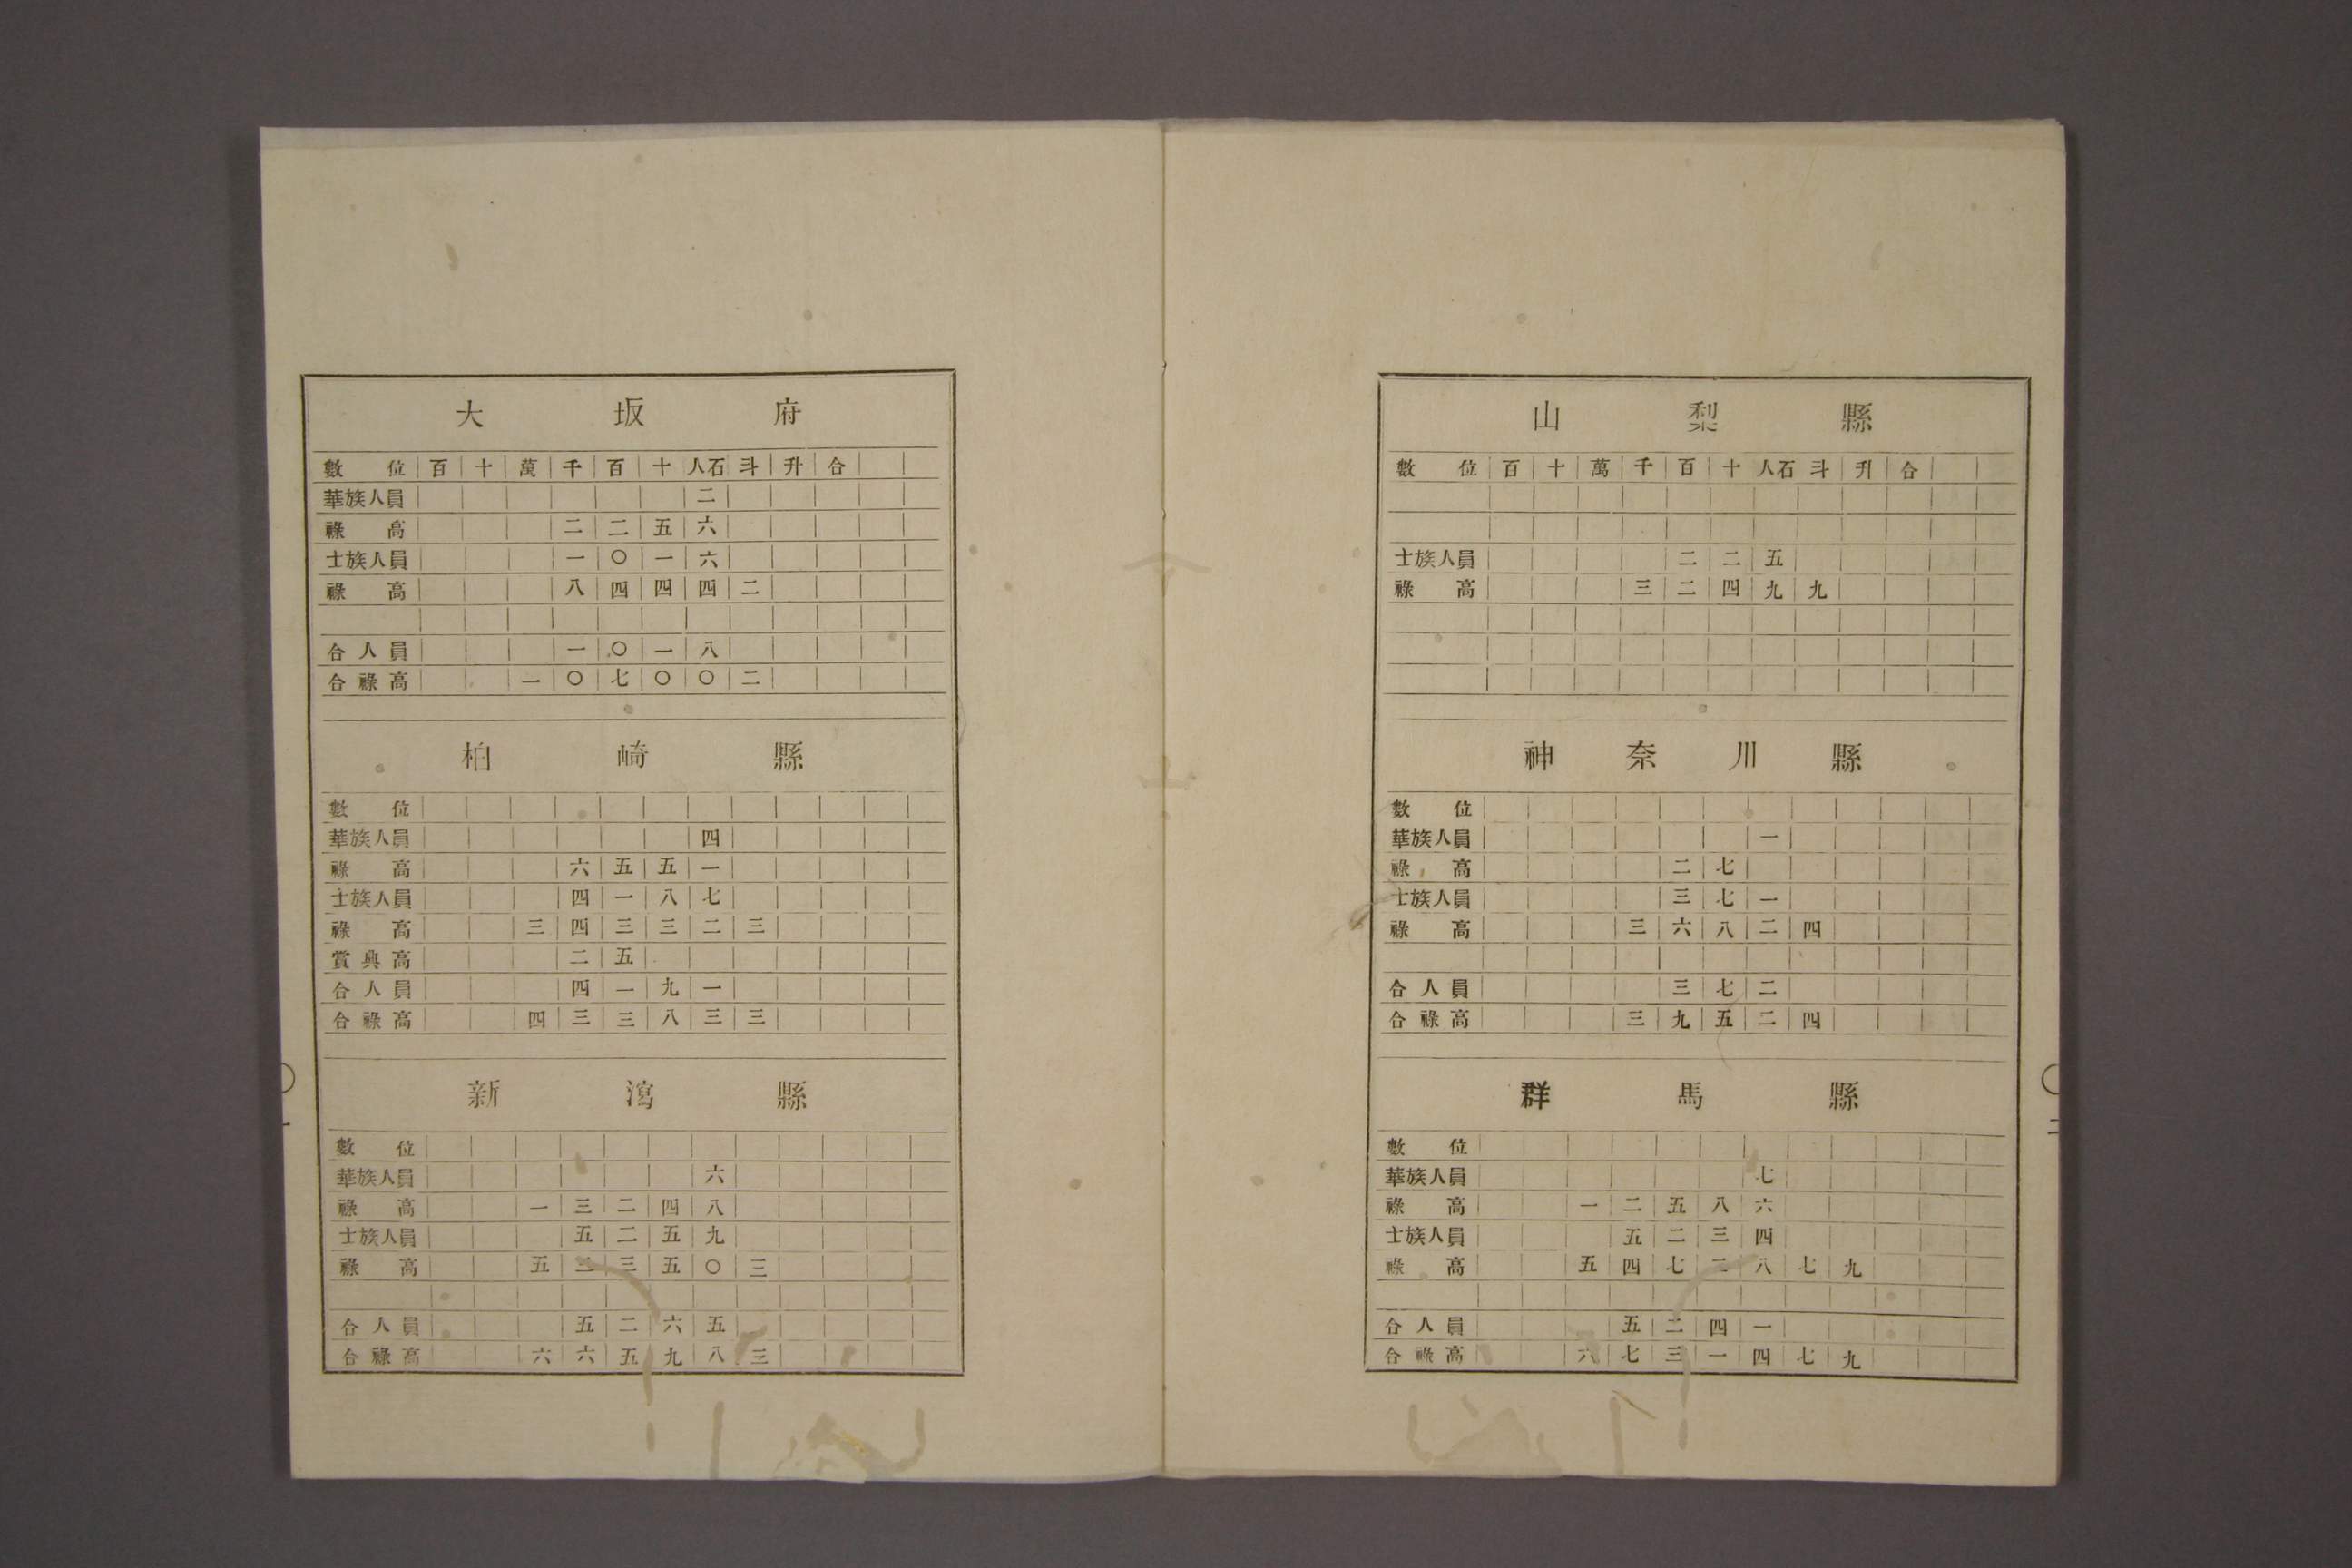 大坂府
數位百十萬千百十人石斗升合
華族人員二
祿高二二五六
士族人員一〇一六
祿高八四四四二
合人員一〇一八
合祿高一〇七〇〇二
柏崎縣
數位
華族人員四
祿高六五五一
士族人員四一八七
祿高三四三三二三
賞典高二五
合人員四一九一
合祿高四三三八三三
新瀉縣
數位
華族人員六
祿高一三二四八
士族人員五二五九
祿高五三三五〇三
合人員五二六五
合祿高六六五九八三
山梨縣
數位百十萬千百十人石斗升合
士族人員二二五
祿高三二四九九
神奈川縣
數位
華族人員一
祿高二七
士族人員三七一
祿高三六八二四
合人員三七二
合祿高三九五二四
群馬縣
數位
華族人員七
祿高一二五八六
士族人員五二三四
祿高五四七二八七九
合人員五二四一
合祿高六七三一四七九